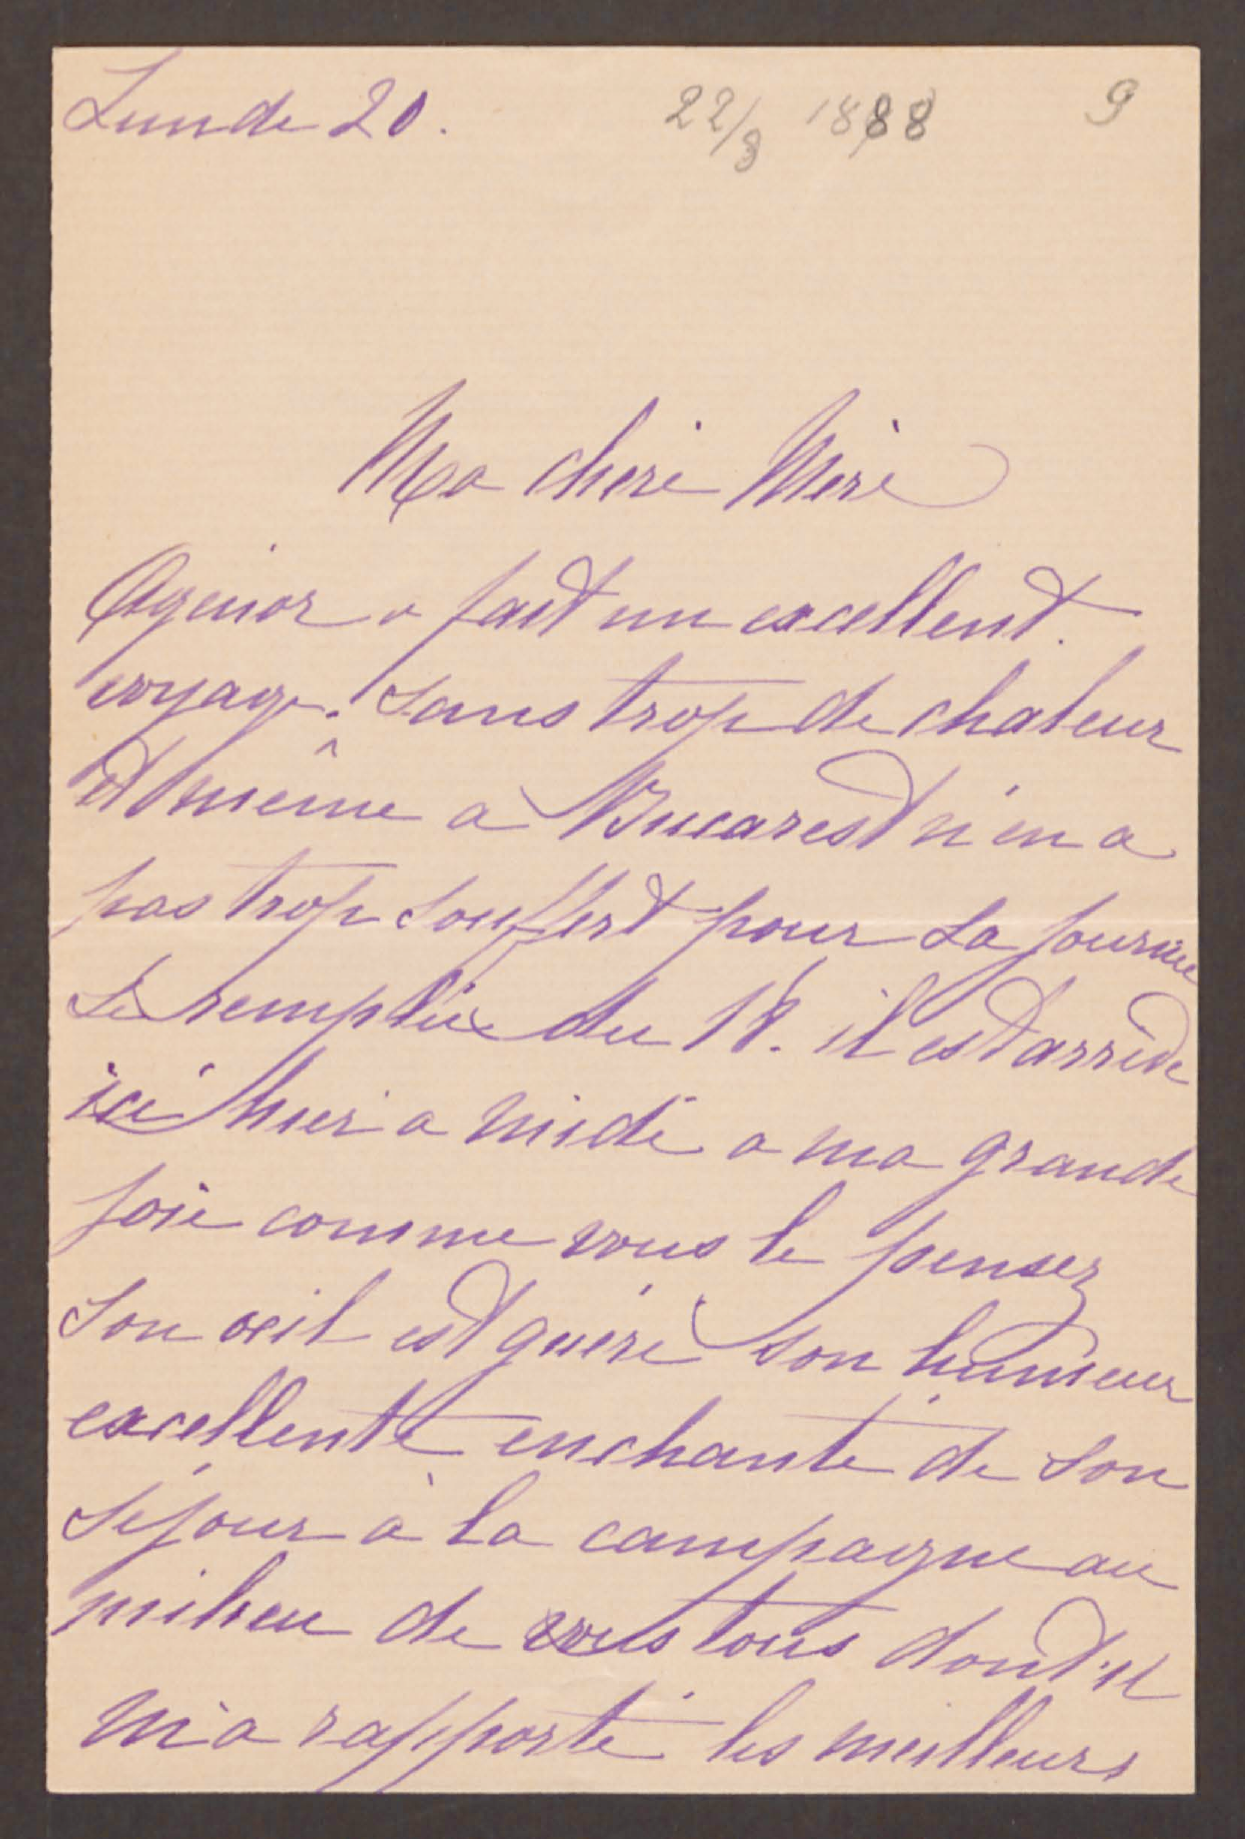 Lundi 20. 22/8 1888 9
Ma chère Mère
Agénor a fait un excellent
voyage. Sans trop de chaleur
et même a Bucarest n'en a
pas trop souffert pour la journée
si remplie du 18. il est arrivé
ici hier a midi a ma grande
joie comme vous le pensez
son œil est guéri son humeur
excellente enchanté de son
séjour à la campagne au
milieu de vous tous dont il
m'a rapporté les meilleurs